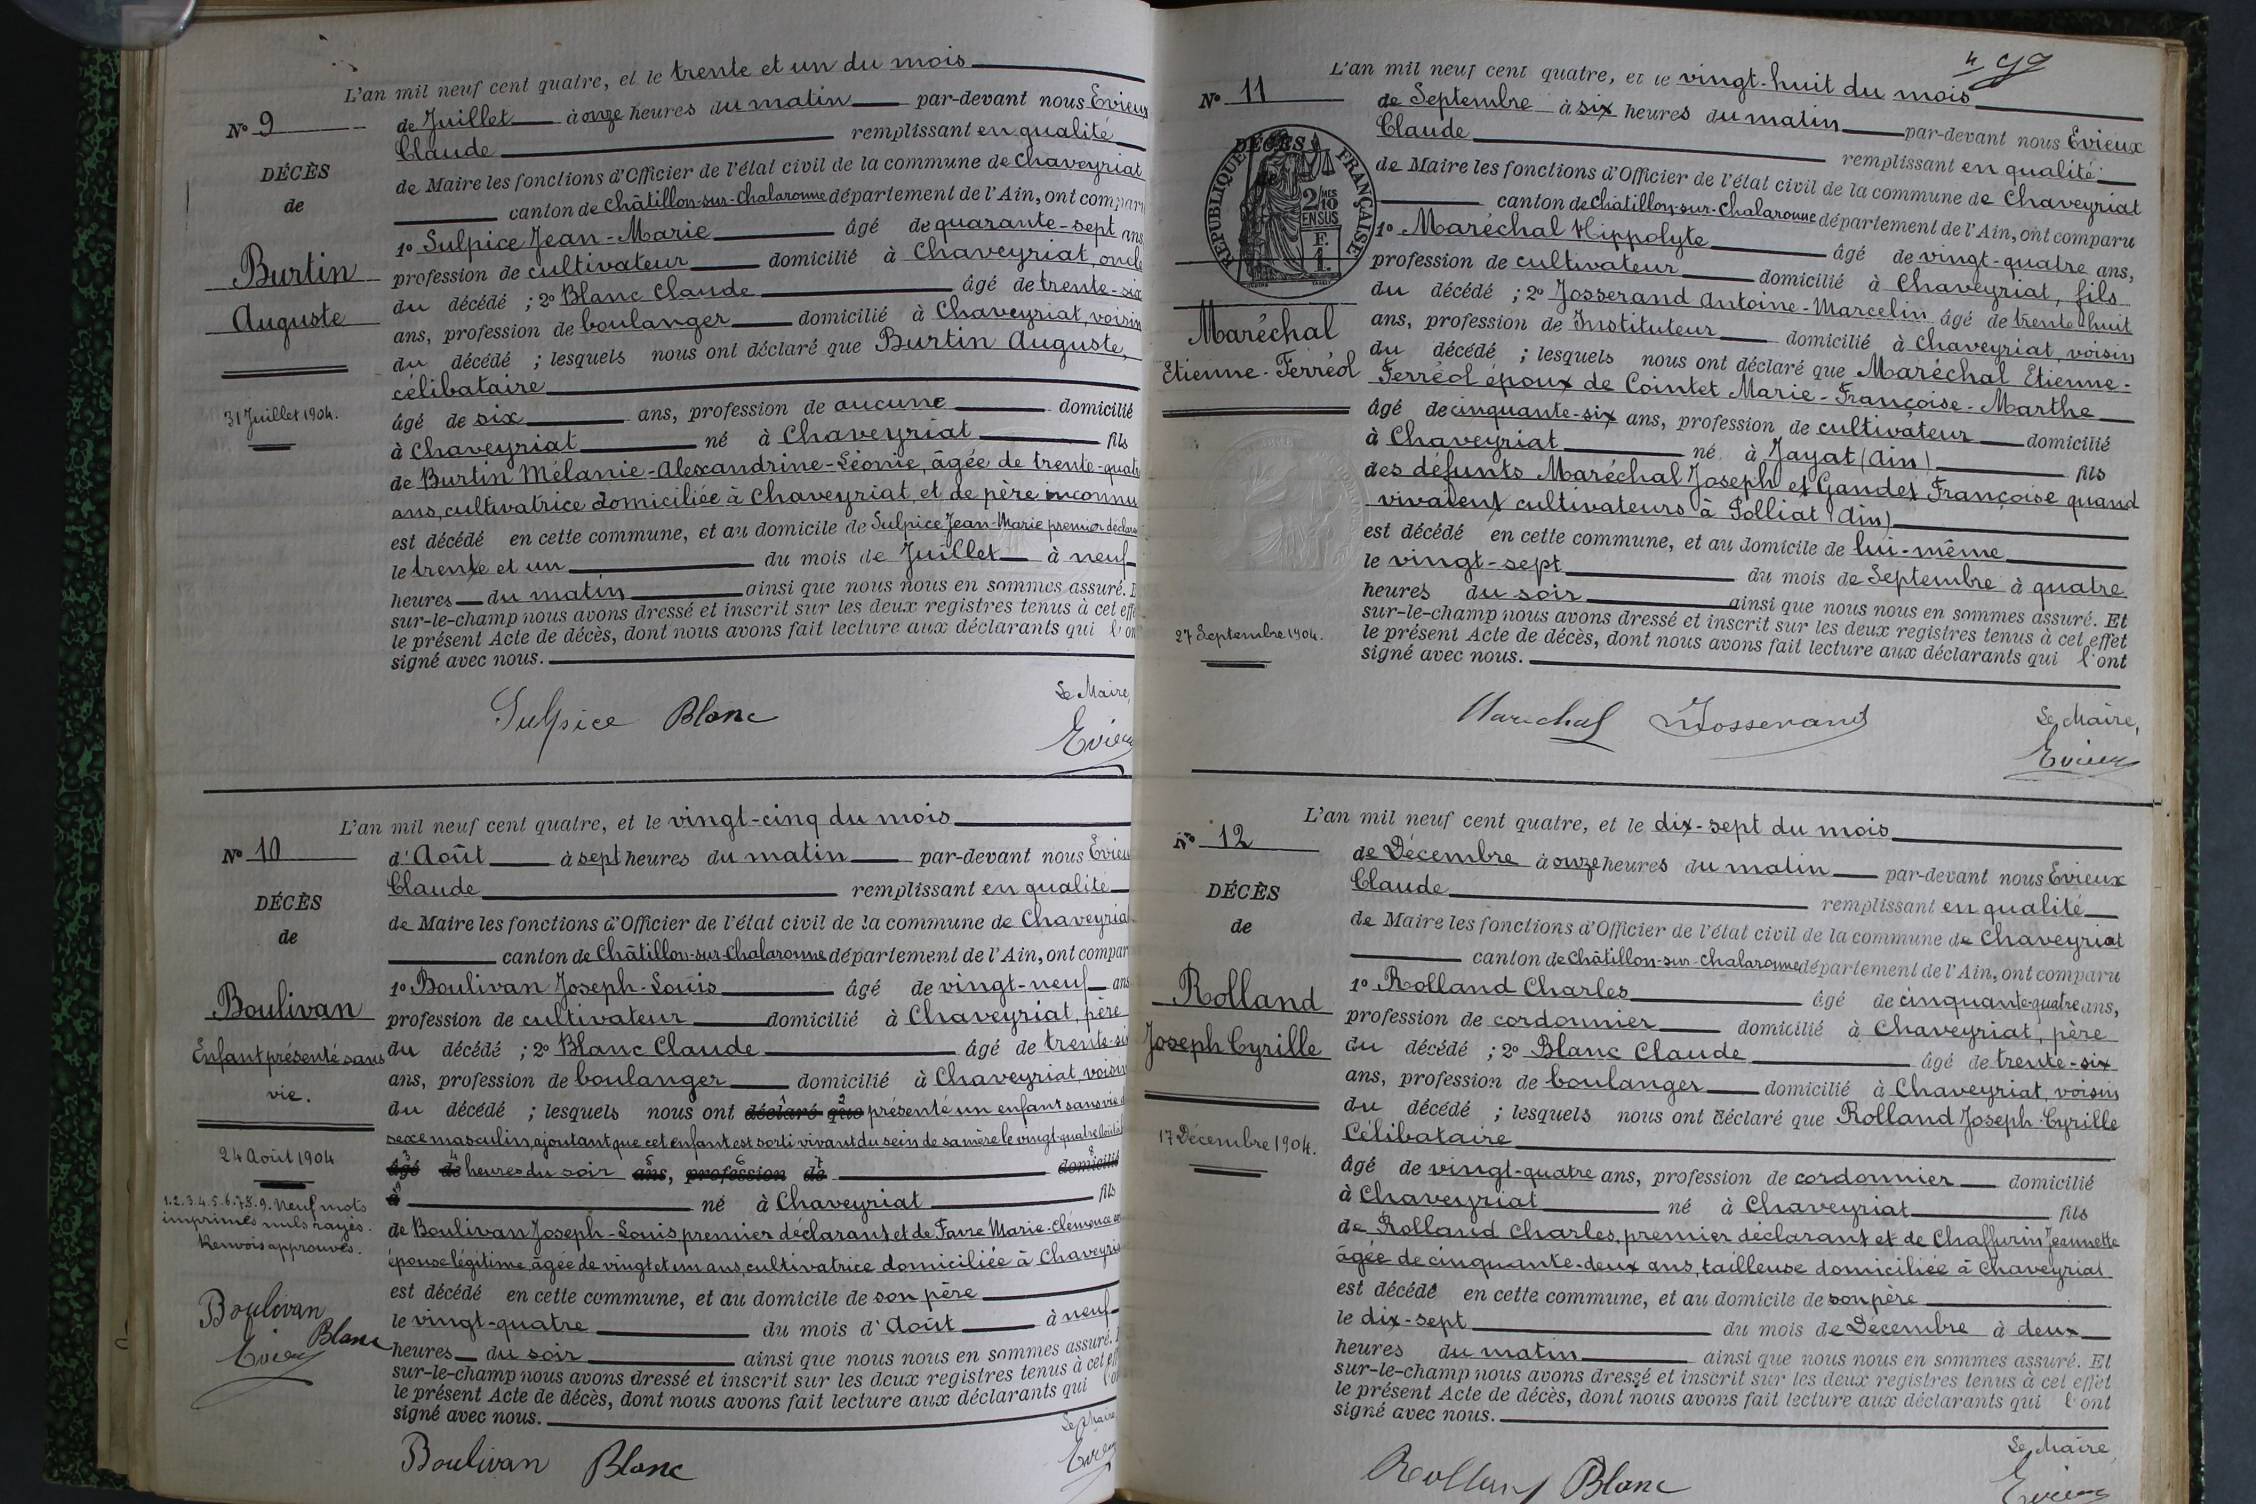 L'an mil neuf cent quatre, et le trente et un du mois
N° 9
de Juillet à onze heures du matin par-devant nous Evieux
Claude remplissant en qualité
DÉCÈS
de Maire les fonctions d'Officier de l'état civil de la commune de Chaveyriat
de
canton de Châtillon-sur-Chalaronne département de l'Ain, ont comparu
1° Sulpice Jean-Marie âgé de quarante-sept ans,
Burtin
profession de cultivateur domicilié à Chaveyriat, oncle
du décédé ; 2° Blanc Claude âgé de trente-six
Auguste
ans, profession de boulanger domicilié à Chaveyriat, voisin
du décédé ; lesquels nous ont déclaré que Burtin Auguste,
célibataire
31 Juillet 1904.
âgé de six ans, profession de aucune domicilié
à Chaveyriat né à Chaveyriat fils
de Burtin Mélanie-Alexandrine-Léonie, âgée de trente-quatr
ans, cultivatrice domiciliée à Chaveyriat, et de père inconnu
est décédé en cette commune, et au domicile de Sulpice Jean-Marie premier déclara
le trente et un du mois de Juillet à neuf
heures du matin ainsi que nous nous en sommes assuré. E
sur-le-champ nous avons dressé et inscrit sur les deux registres tenus à cet effe
le présent Acte de décès, dont nous avons fait lecture aux déclarants qui l'on
signé avec nous.
Le Maire,
Sulpice Blanc
Evieux
L'an mil neuf cent quatre, et le vingt-cinq du mois
N° 10
d'Août à sept heures du matin par-devant nous Evieu
Claude remplissant en qualité
DÉCÈS
de Maire les fonctions d'Officier de l'état civil de la commune de Chaveyria
de
canton de Châtillon-sur-Chalaronne département de l'Ain, ont compar
1° Boulivan Joseph-Louis âgé de vingt-neuf ans
Boulivan
profession de cultivateur domicilié à Chaveyriat, père
Enfant présenté sans
vie.
du décédé ; 2° Blanc Claude âgé de trente-si
ans, profession de boulanger domicilié à Chaveyriat, voisin
du décédé ; lesquels nous ont déclaré que présenté un enfant sans vie d
sexe masculin, ajoutant que cet enfant est sorti vivant du sein de sa mère le vingt-quatre
24 Août 1904
âgé de heures du soir ans, profession de domicilié
1.2.3.4.5.6.7.8.9. Neuf mots
imprimés nuls rayés.
Renvois approuvés.
à né à Chaveyriat fils
de Boulivan Joseph-Louis premier déclarant et de Favre Marie-Clémence
épouse légitime, âgée de vingt et un ans, cultivatrice domiciliée à Chaveyria
est décédé en cette commune, et au domicile de son père
Boulivan
Blanc
Evieux
le vingt-quatre du mois d'Août à neuf
heures du soir ainsi que nous nous en sommes assuré.
sur-le-champ nous avons dressé et inscrit sur les deux registres tenus à cet eff
le présent Acte de décès, dont nous avons fait lecture aux déclarants qui l'o
signé avec nous.
Le Maire,
Boulivan Blanc
Evieux
4
L'an mil neuf cent quatre, et le vingt-huit du mois
N° 11
de Septembre à six heures du matin par-devant nous Evieux
Claude remplissant en qualité
DÉCÈS
RÉPUBLIQUE FRANÇAISE
2/10 MES
EN SUS
F. 1.
de Maire les fonctions d'Officier de l'état civil de la commune de Chaveyriat
canton de Châtillon-sur-Chalaronne département de l'Ain, ont comparu
1° Maréchal Hippolyte âgé de vingt-quatre ans,
profession de cultivateur domicilié à Chaveyriat, fils
Maréchal
Etienne-Ferréol
du décédé ; 2° Josserand Antoine-Marcelin âgé de trente-huit
ans, profession de Instituteur domicilié à Chaveyriat, voisin
du décédé ; lesquels nous ont déclaré que Maréchal Etienne-
Ferréol époux de Cointet Marie-Françoise-Marthe
âgé de cinquante-six ans, profession de cultivateur domicilié
à Chaveyriat né à Jayat (Ain) fils
des défunts Maréchal Joseph et Gandet Françoise quand
vivaient cultivateurs à Polliat (Ain)
est décédé en cette commune, et au domicile de lui-même
le vingt-sept du mois de Septembre à quatre
heures du soir ainsi que nous nous en sommes assuré. Et
27 Septembre 1904.
sur-le-champ nous avons dressé et inscrit sur les deux registres tenus à cet effet
le présent Acte de décès, dont nous avons fait lecture aux déclarants qui l'ont
signé avec nous.
Le Maire,
Maréchal Josserand
Evieux
L'an mil neuf cent quatre, et le dix-sept du mois
N° 12
de Décembre à onze heures du matin par-devant nous Evieux
Claude remplissant en qualité
DÉCÈS
de Maire les fonctions d'Officier de l'état civil de la commune de Chaveyriat
de
canton de Châtillon-sur-Chalaronne département de l'Ain, ont comparu
1° Rolland Charles âgé de cinquante-quatre ans,
Rolland
Joseph Cyrille
profession de cordonnier domicilié à Chaveyriat, père
du décédé ; 2° Blanc Claude âgé de trente-six
ans, profession de boulanger domicilié à Chaveyriat, voisin
du décédé ; lesquels nous ont déclaré que Rolland Joseph-Cyrille
Célibataire
17 Décembre 1904.
âgé de vingt-quatre ans, profession de cordonnier domicilié
à Chaveyriat né à Chaveyriat fils
de Rolland Charles, premier déclarant et de Chaffurin Jeannette
âgée de cinquante-deux ans, tailleuse domiciliée à Chaveyriat
est décédé en cette commune, et au domicile de son père
le dix-sept du mois de Décembre à deux
heures du matin ainsi que nous nous en sommes assuré. Et
sur-le-champ nous avons dressé et inscrit sur les deux registres tenus à cet effet
le présent Acte de décès, dont nous avons fait lecture aux déclarants qui l'ont
signé avec nous.
Le Maire,
Rolland Blanc
Evieux